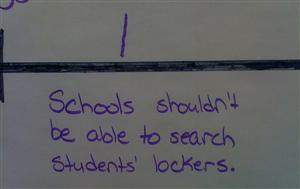 Schools shouldn't
be able to search
students' lockers.